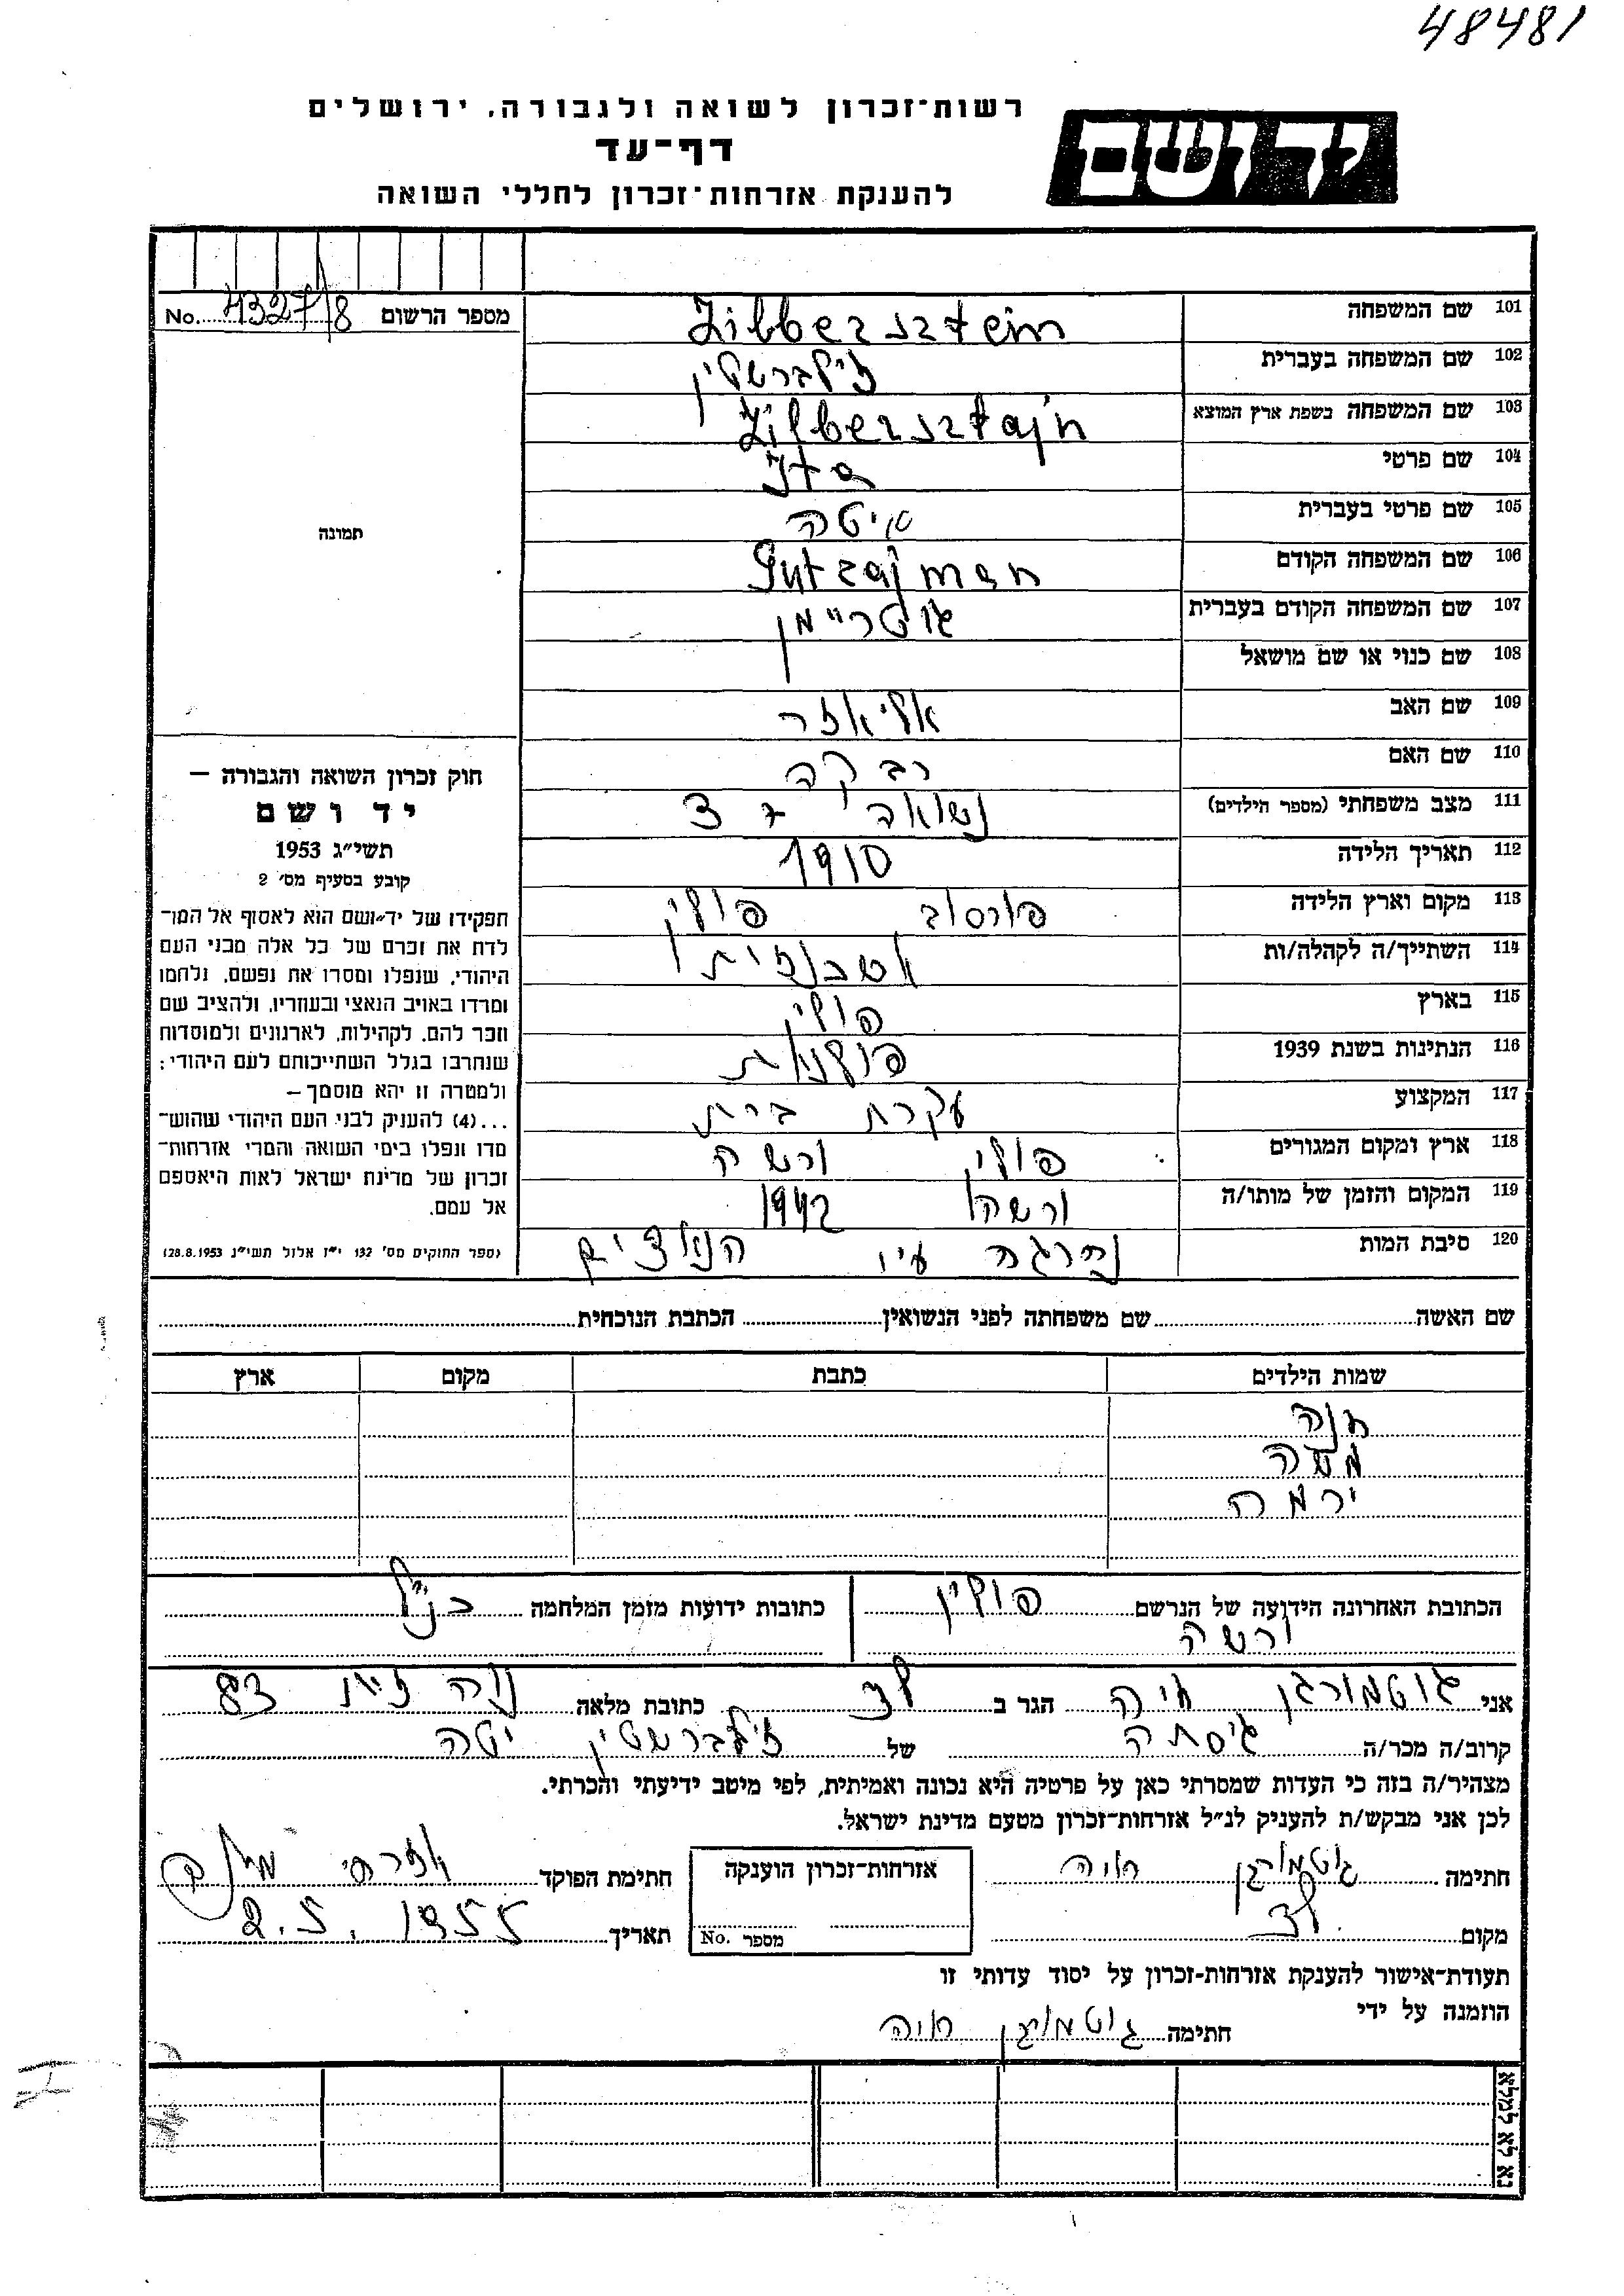 48481
רשות־זכרון לשואה ולגבורה, ירושלים
יד ושם
דף־עד
להענקת אזרחות־זכרון לחללי השואה
מספר הרשום No. 4327/8
תמונה
101 שם המשפחה Zilbersztein
102 שם המשפחה בעברית זילברשטין
103 שם המשפחה בשפת ארץ המוצא Zilbersztajn
104 שם פרטי Ita
105 שם פרטי בעברית איטה
106 שם המשפחה הקודם Gutrajman
107 שם המשפחה הקודם בעברית גוטריימן
108 שם כנוי או שם מושאל
109 שם האב אליאזר
110 שם האם רבקה
111 מצב משפחתי (מספר הילדים) נשואה + 3
112 תאריך הלידה 1910
113 מקום וארץ הלידה פורסוב פולין
114 השתייך/ה לקהלה/ות אשכנזית
115 בארץ פולין
116 הנתינות בשנת 1939 פולנית
117 המקצוע עקרת בית
118 ארץ ומקום המגורים פולין ורשה
119 המקום והזמן של מותו/ה ורשה 1942
120 סיבת המות נהרגה ע״י הנאצים
חוק זכרון השואה והגבורה —
יד ושם
תשי״ג 1953
קובע בסעיף מס׳ 2
תפקידו של יד־ושם הוא לאסוף אל המו־
לדת את זכרם של כל אלה מבני העם
היהודי, שנפלו ומסרו את נפשם, נלחמו
ומרדו באויב הנאצי ובעוזריו, ולהציב שם
וזכר להם, לקהילות, לארגונים ולמוסדות
שנחרבו בגלל השתייכותם לעם היהודי;
ולמטרה זו יהא מוסמך —
...(4) להעניק לבני העם היהודי שהוש־
מדו ונפלו בימי השואה והמרי אזרחות־
זכרון של מדינת ישראל לאות היאספם
אל עמם.
(ספר החוקים מס׳ 132 י״ז אלול תשי״ג 28.8.1953)
שם האשה שם משפחתה לפני הנשואין הכתבת הנוכחית
שמות הילדים כתבת מקום ארץ
חנה
משה
ירמה
הכתובת האחרונה הידועה של הנרשם פולין כתובות ידועות מזמן המלחמה כנ״ל
ורשה
אני גוטמורגן חיה הגר ב לוד כתובת מלאה נוה זית 83
קרוב/ה מכר/ה גיסתה של זילברשטין יטה
מצהיר/ה בזה כי העדות שמסרתי כאן על פרטיה היא נכונה ואמיתית, לפי מיטב ידיעתי והכרתי.
לכן אני מבקש/ת להעניק לנ״ל אזרחות־זכרון מטעם מדינת ישראל.
חתימה גוטמורגן חיה אזרחות־זכרון הוענקה חתימת הפוקד אזרחי
מקום לוד מספר No. תאריך 2.5.1955
תעודת־אישור להענקת אזרחות־זכרון על יסוד עדותי זו
הוזמנה על ידי
חתימה גוטמורגן חיה
נא לא למלא